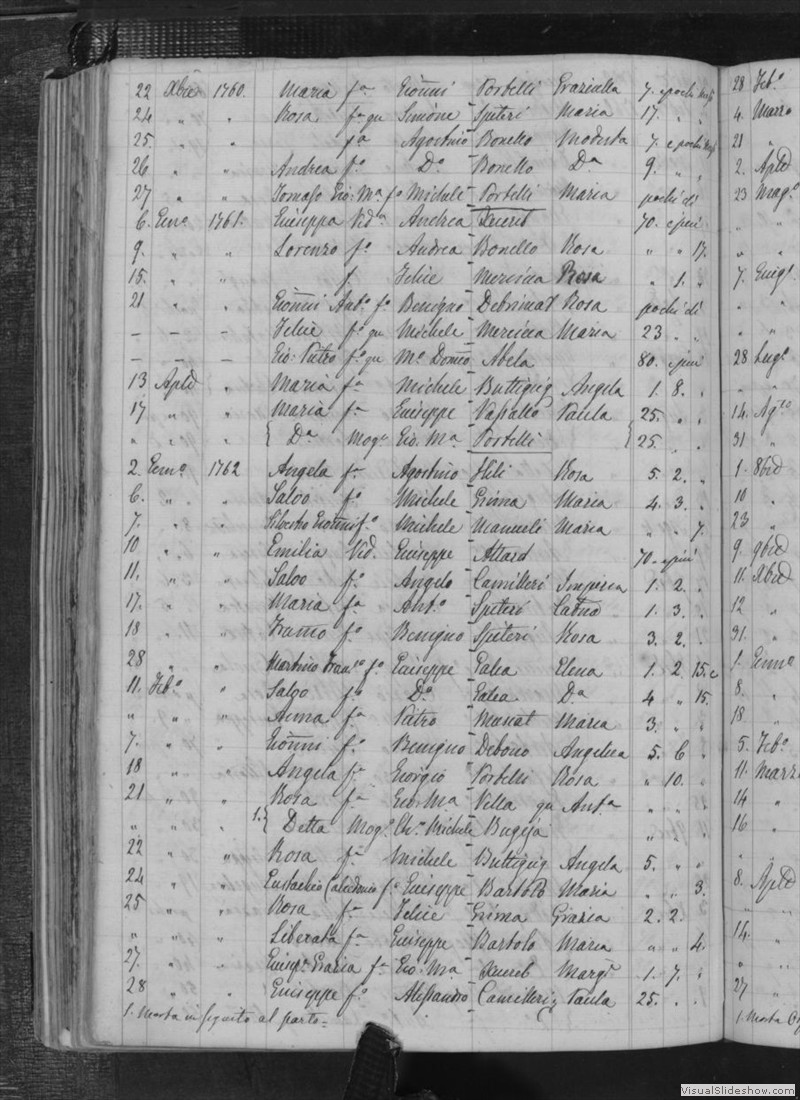 22 Xbre 1760. Maria fa Gioñni Portelli Grazialla 7. e pochi mesi
24 " " Rosa fa qu Simone Spiteri Maria 17. " "
25. " " fa Agostino Bonello Modesta 7. e pochi mesi
26 " " Andrea fo Do Bonello Da 9. " "
27 " " Tomaso Gio: Ma fo Michele Portelli Maria pochi di
6. Genro 1761. Giuseppa Vida Andrea Xuereb 70. e piu
9. " " Lorenzo fo Andrea Bonello Rosa " " 17.
15. " " f. Felice Mercieca Rosa " 1. "
21 " " Gioñni Anto fo Benigno Debrincat Rosa pochi di
- - - Felice fo qu Michele Mercieca Maria 23 " "
- - - Gio: Pietro fo qu Mo Domco Abela 80. e piu
13 Aple " Maria fa Michele Buttigieg Angela 1. 8. "
17 " " Maria fa Giuseppe Vassallo Paula 25. " "
" " " { Da Moge Gio. Ma Portelli { 25 " "
2. Genro 1762 Angela fa Agostino Hili Rosa 5. 2. "
6. " " Salvo fo Michele Grima Maria 4. 3. "
7. " " Silvestro Gioñni fo Michele Manueli Maria " " 7.
10 " " Emilia Vid. Giuseppe Attard 70. e piu
11. " " Salvo fo Angelo Camilleri Imperia 1. 2. "
17. " " Maria fa Anto Spiteri Catna 1. 3. "
18 " " Franco fo Benigno Spiteri Rosa 3. 2. "
28 " " Martino Franco fo Giuseppe Galea Elena 1. 2. 15. e
11. Febo " Salvo fo Do Galea Da 4 " 15.
" " " Anna fa Pietro Muscat Maria 3. " "
7. " " Gioñni fo Benigno Debono Angelica 5. 6 "
18 " " Angela fa Giorgio Portelli Rosa " 10. "
21 " " Rosa fa Gio: Ma Vella qu Anta " " "
" " " 1. { Detta Moge Michele Bugeja " " "
22 " " Rosa fa Michele Buttigieg Angela 5. " "
24 " " Eustachio fo Giuseppe Bartolo Maria " " 3.
25 " " Rosa fa Felice Grima Grazia 2. 2.
" " " Liberata fa Giuseppe Bartolo Maria " " 4.
27. " " Giuspa Grazia fa Gio: Ma Xuereb Margta 1. 7. "
28 " " Giuseppe fo Alessandro Camilleri Paula 25. " "
1. Morta in seguito al parto =
28 Febo
4. Marzo
21 "
2. Aple
23 Mago
" "
" "
7. Giugo
" "
" "
28 Lugo
" "
14. Agto
31 "
1. 8bre
10 "
23 "
9. 9bre
11. Xbre
12 "
31. "
1. Genro
8. "
18 "
5. Febo
11. Marzo
14 "
16 "
" "
8. Aple
" "
14. "
" "
27 "
1. Morta
VisualSlideshow.com